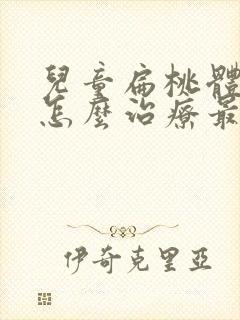 兒童扁桃體
怎麼治療最
伊奇克里亞